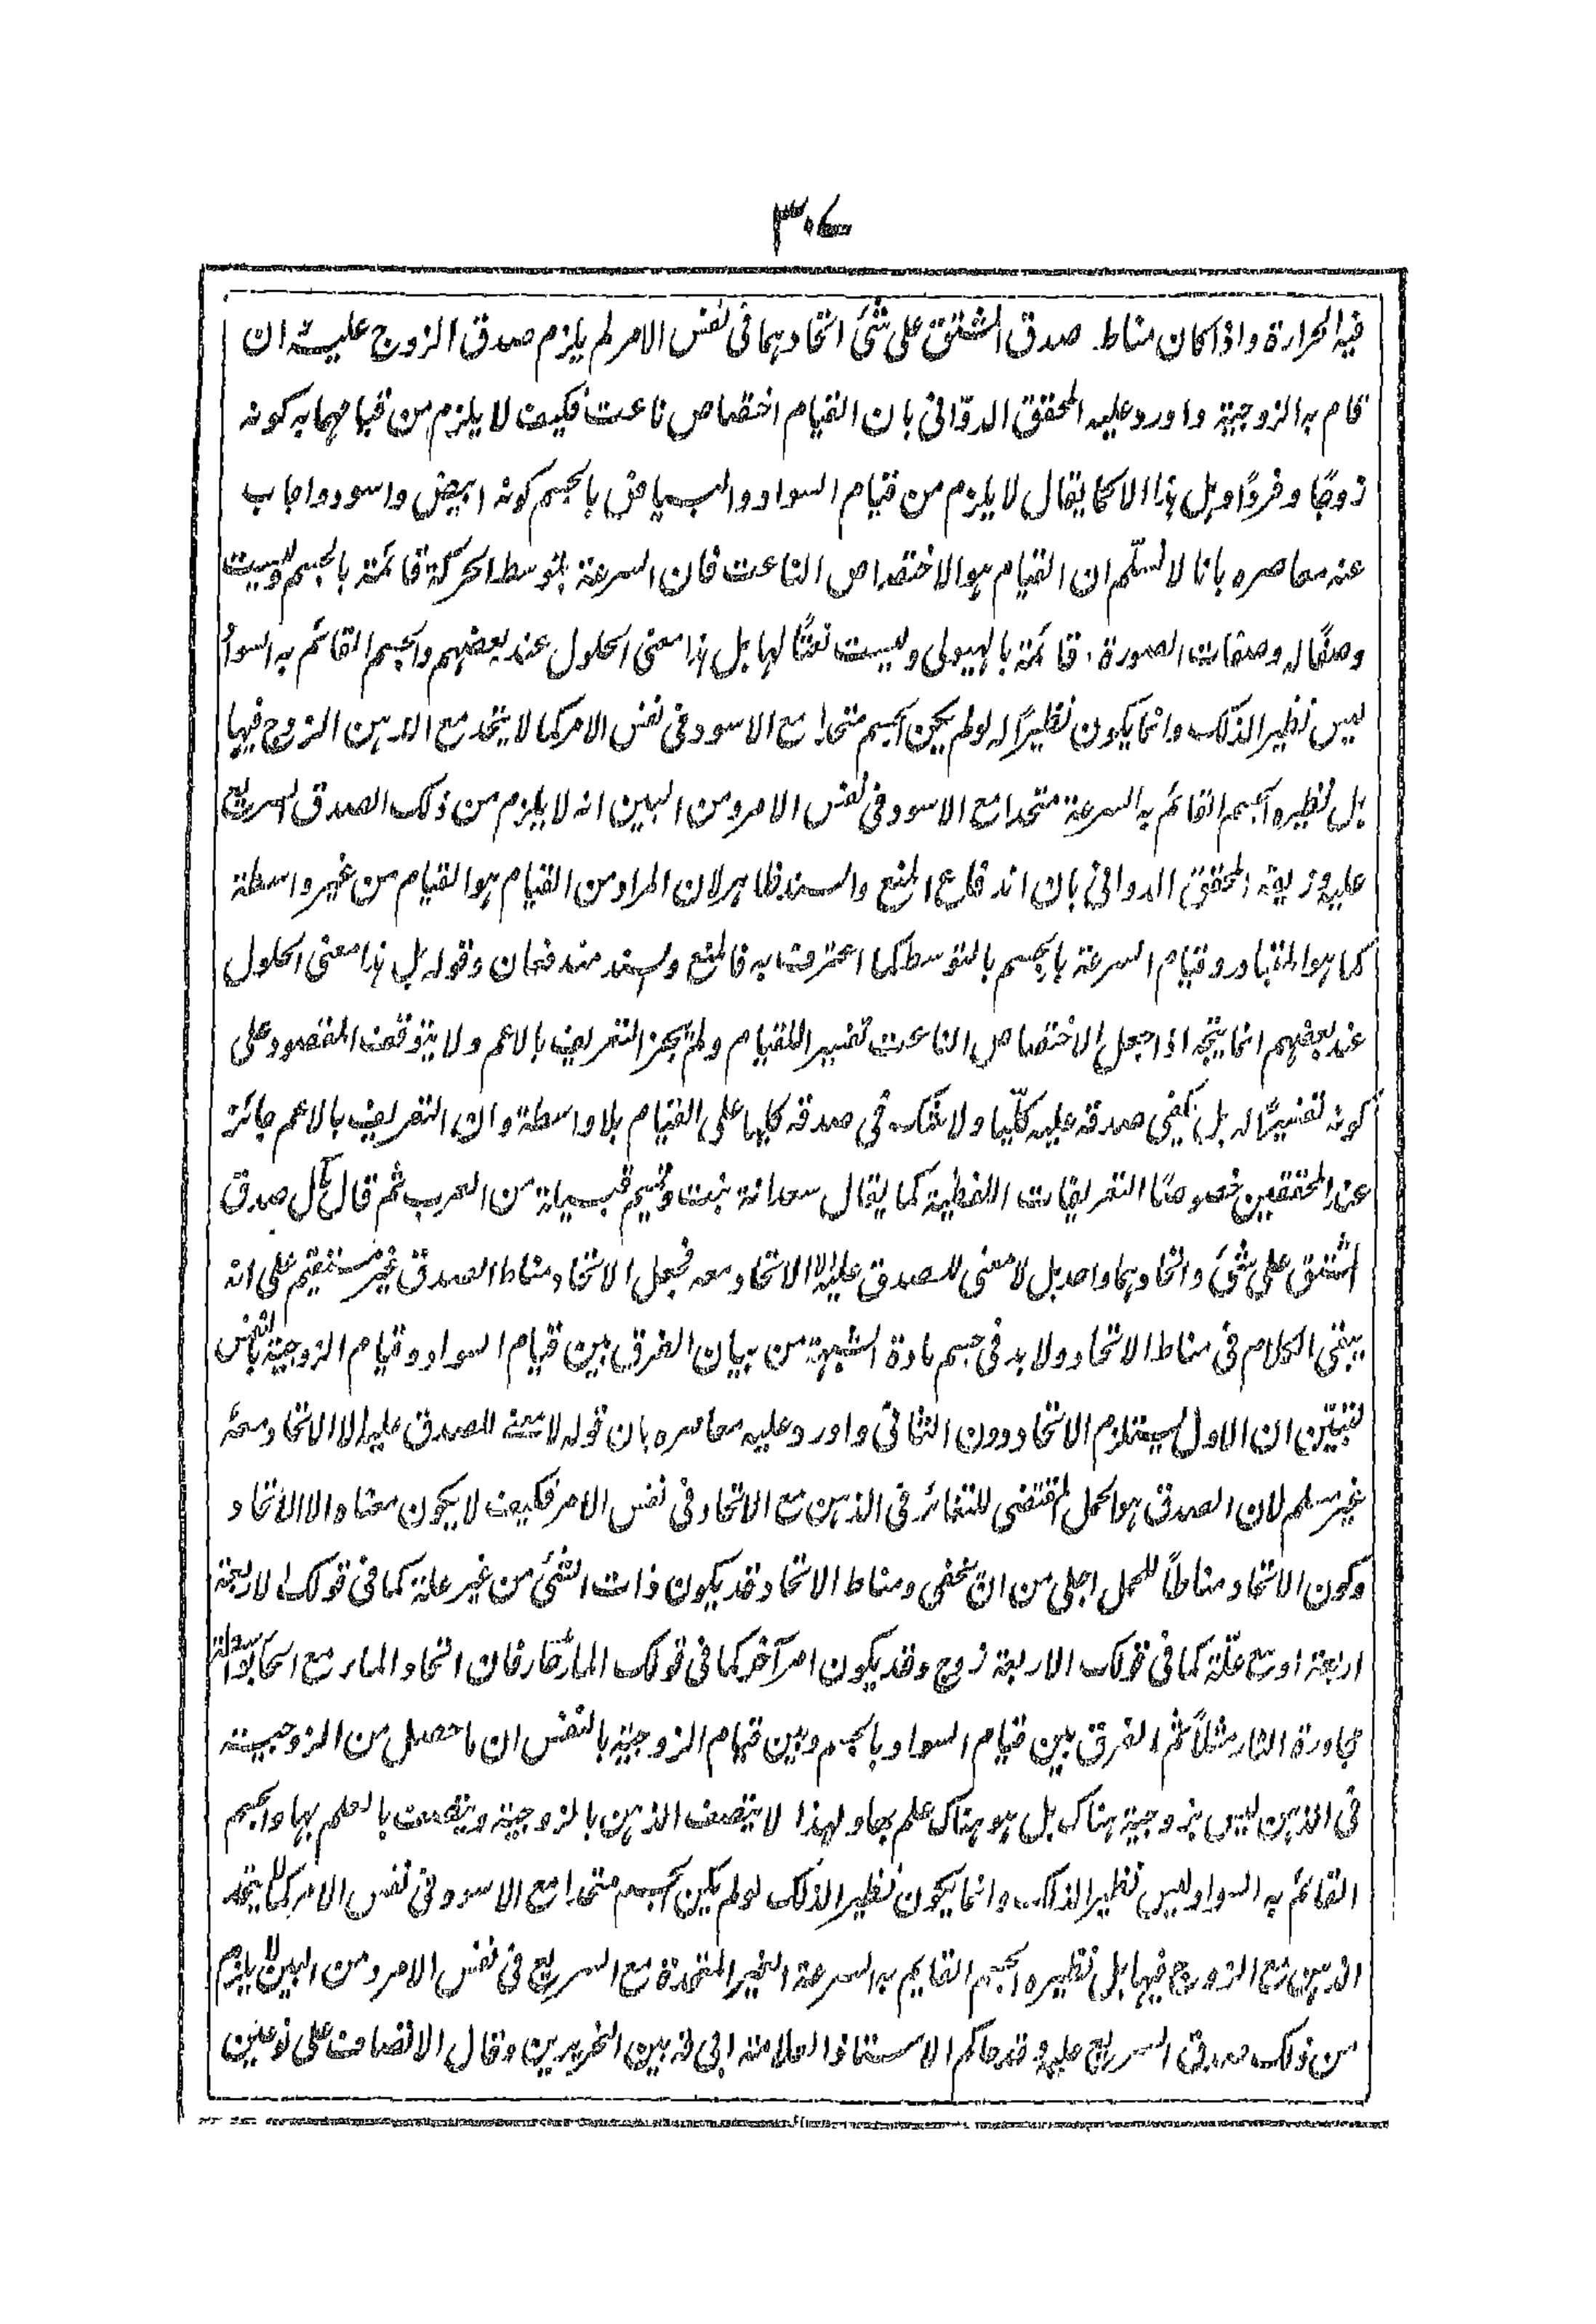 ٣٠٧
فيه الحرارة واذا كان مناط صدق المشتق على شئ اتحادهما فى نفس الامر لم يلزم صدق الزوج عليه ان
قام به الزوجية واورد عليه المحقق الدوّانى بان القيام اختصاص ناعت فكيف لا يلزم من قيامهما به كونه
زوجًا وفردًا وهل هذا الا كما يقال لا يلزم من قيام السواد والبياض بالجسم كونه ابيض واسود واجاب
عنه معاصره بانا لا نسلّم ان القيام هو الاختصاص الناعت فان السرعة بتوسط الحركة قائمة بالجسم وليست
وصفًا له وصفات الصورة قائمة بالهيولى وليست نعتًا لها بل هذا معنى الحلول عند بعضهم والجسم القائم به السواد
ليس نظير الذلك وانما يكون نظيرًا له لو لم يكن الجسم متحدا مع الاسود فى نفس الامر كما لا يتحد مع الذهن الزوج فيها
بل نظيره الجسم القائم به السرعة متحدا مع الاسود فى نفس الامر ومن البين انه لا يلزم من ذلك الصدق السريع
عليه وزيفه المحقق الدوانى بان اندفاع المنع والسند ظاهر لان المراد من القيام هو القيام من غير واسطة
كما هو المتبادر وقيام السرعة بالجسم بالتوسط كما اعترف به فالمنع والسند مندفعان وقوله بل هذا معنى الحلول
عند بعضهم انما يتجه اذا جعل الاختصاص الناعت تفسيرا للقيام ولم يجز التعريف بالاعم ولا يتوقف المقصود على
كونه تفسيرًا له بل يكفى صدقه عليه كلّيا ولا شك فى صدقه كليا على القيام بلا واسطة وان التعريف بالاعم جائز
عند المحققين خصوصًا التعريفات اللفظية كما يقال سعدانة نبت وتميم قبيلة من العرب ثم قال كل صدق
المشتق على شئ واتحادهما واحد بل لا معنى للصدق عليه الا الاتحاد معه فجعل الاتحاد مناط الصدق غير مستقيم على انه
يبقى الكلام فى مناط الاتحاد ولا بد فى حسم مادة الشبهة من بيان الفرق بين قيام السواد وقيام الزوجية بالنفس
لتبيّن ان الاول يستلزم الاتحاد دون الثانى واورد عليه معاصره بان قوله لا معنے للصدق عليه الا الاتحاد معه
غير مسلم لان الصدق هو الحمل المقتضى للتغائر فى الذهن مع الاتحاد فى نفس الامر فكيف لا يكون معناه الا الاتحاد
وكون الاتحاد مناطاً للحمل اجلى من ان يخفى ومناط الاتحاد قد يكون ذات الشئ من غير علة كما فى قولك الاربعة
اربعة او مع علّة كما فى قولك الاربعة زوج وقد يكون امر آخر كما فى قولك الماء حار فان اتحاد الماء مع الحار بواسطة
مجاورة النار مثلاً ثم الفرق بين قيام السواد بالجسم وبين قيام الزوجية بالنفس ان ما حصل من الزوجية
فى الذهن ليس بزوجية هناك بل هو هناك علم بها ولهذا لا يتصف الذهن بالزوجية ويتصف بالعلم بها والجسم
القائم به السواد ليس نظير الذلك وانما يكون نظير الذلك لو لم يكن الجسم متحدا مع الاسود فى نفس الامر كما لا يتحد
الذهن مع الزوج فيها بل نظيره الجسم القايم به السرعة الغير المتحدة مع السريع فى نفس الامر ومن البين لا يلزم
من ذلك صدق السريع عليه وقد حاكم الاستاذ العلامة ابى فه بين النحريرين وقال الاتصاف على نوعين